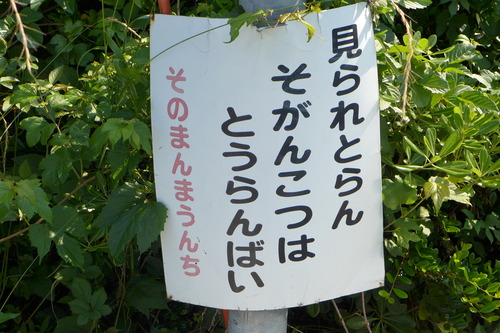 見られとらん
そがんこつは
とうらんばい
そのまんまうんち